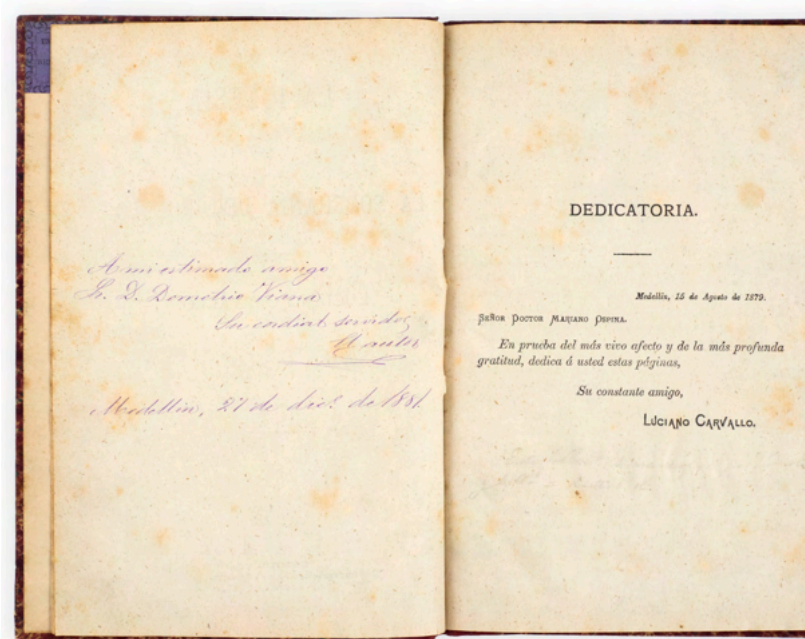 A mi estimado amigo
Sr. D. Demetrio Viana
Su cordial servidor,
El autor
Medellín, 27 de dic.e de 1881.
DEDICATORIA.
Medellín, 15 de Agosto de 1879.
SEÑOR DOCTOR MARIANO OSPINA.
En prueba del más vivo afecto y de la más profunda
gratitud, dedica á usted estas páginas,
Su constante amigo,
LUCIANO CARVALLO.